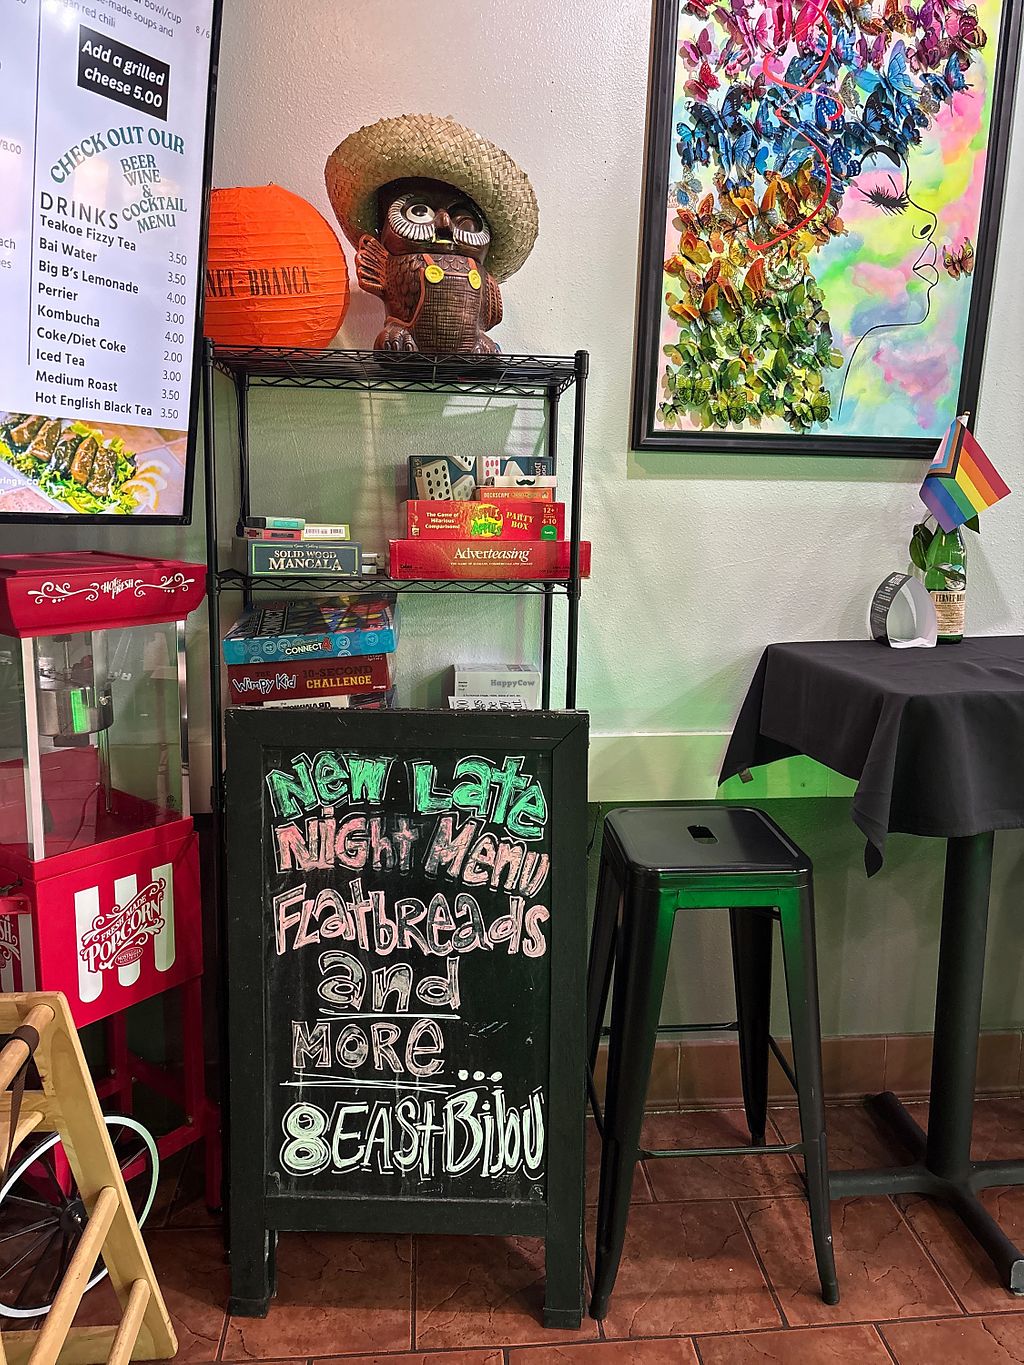 bowl/cup
-made soups and
gan red chili
8 / 6
Add a grilled
cheese 5.00
CHECK OUT OUR
BEER
WINE
&
COCKTAIL
MENU
DRINKS
Teakoe Fizzy Tea 3.50
Bai Water 3.50
Big B's Lemonade 4.00
Perrier 3.00
Kombucha 4.00
Coke/Diet Coke 2.00
Iced Tea 3.00
Medium Roast 3.50
Hot English Black Tea 3.50
NET-BRANCA
The Game of
Hilarious
Comparisons!
Apples
to
Apples
PARTY
BOX
12+
4-10
Adverteasing
SOLID WOOD
MANCALA
CONNECT 4
Wimpy Kid
10-SECOND
CHALLENGE
HappyCow
FERNET-BR
HOT & FRESH
FRESH MADE
POPCORN
New Late
Night Menu
Flatbreads
and
MORE...
8 EAST Bijou